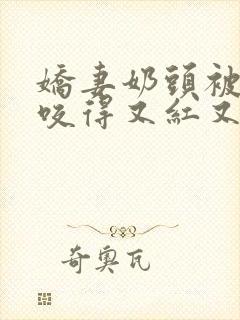 嬌妻奶頭被
咬得又紅又
奇奧瓦